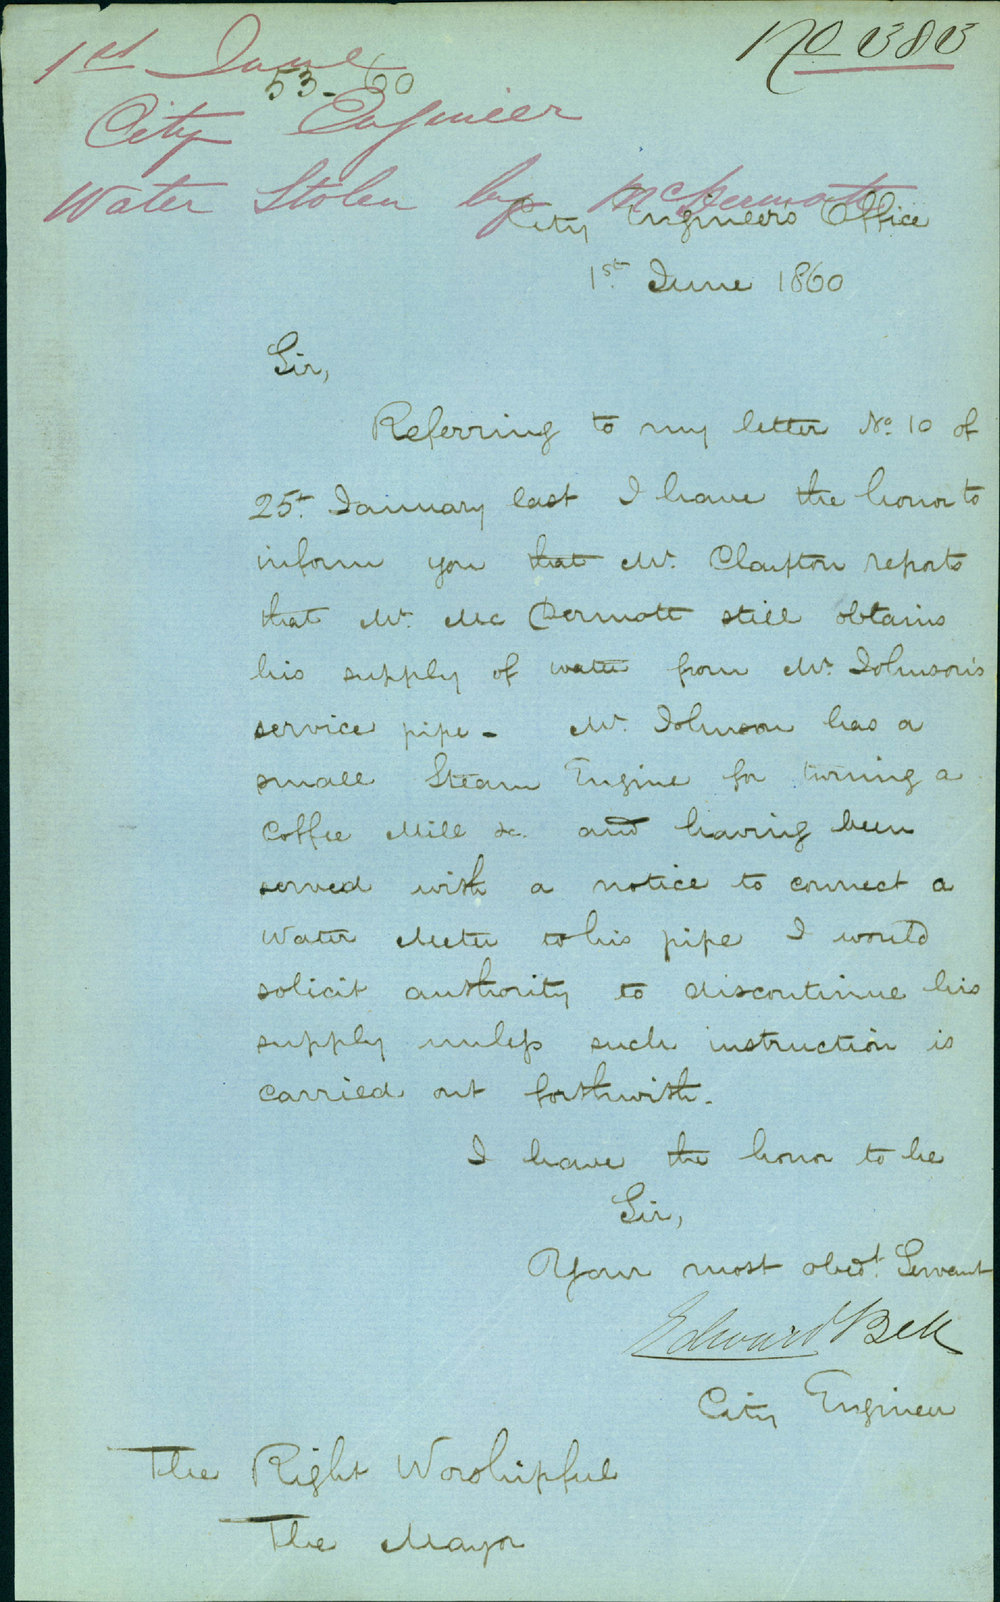 1st June
No 383
53-60
City Engineer
Water Stolen by McDermott
City Engineers Office
1st June 1860
Sir,
Referring to my letter No. 10 of
25t. January last I have the honor to
inform you that Mr. Clayton reports
that Mr. Mc Dermott still obtains
his supply of water from Mr. Johnson's
service pipe - Mr. Johnson has a
small Steam Engine for turning a
Coffee Mill &c. and having been
served with a notice to connect a
Water Meter to his pipe I would
solicit authority to discontinue his
supply unless such instruction is
carried out forthwith.
I have the honor to be
Sir,
Your most obedt. Servant
Edward Bell
City Engineer
The Right Worshipful
The Mayor